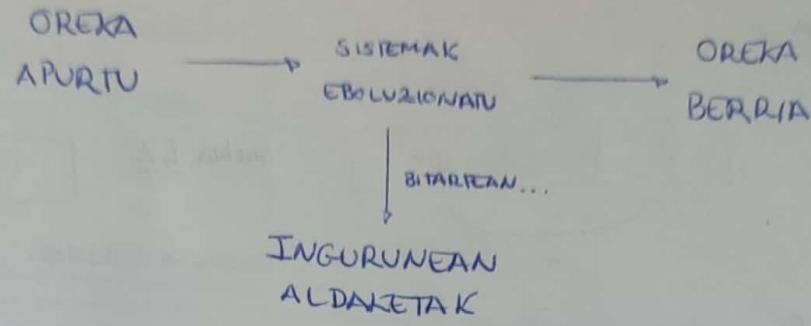 OREKA
APURTU
SISTEMAK
EBOLUZIONATU
OREKA
BERRIA
BITARTEAN...
INGURUNEAN
ALDAKETAK